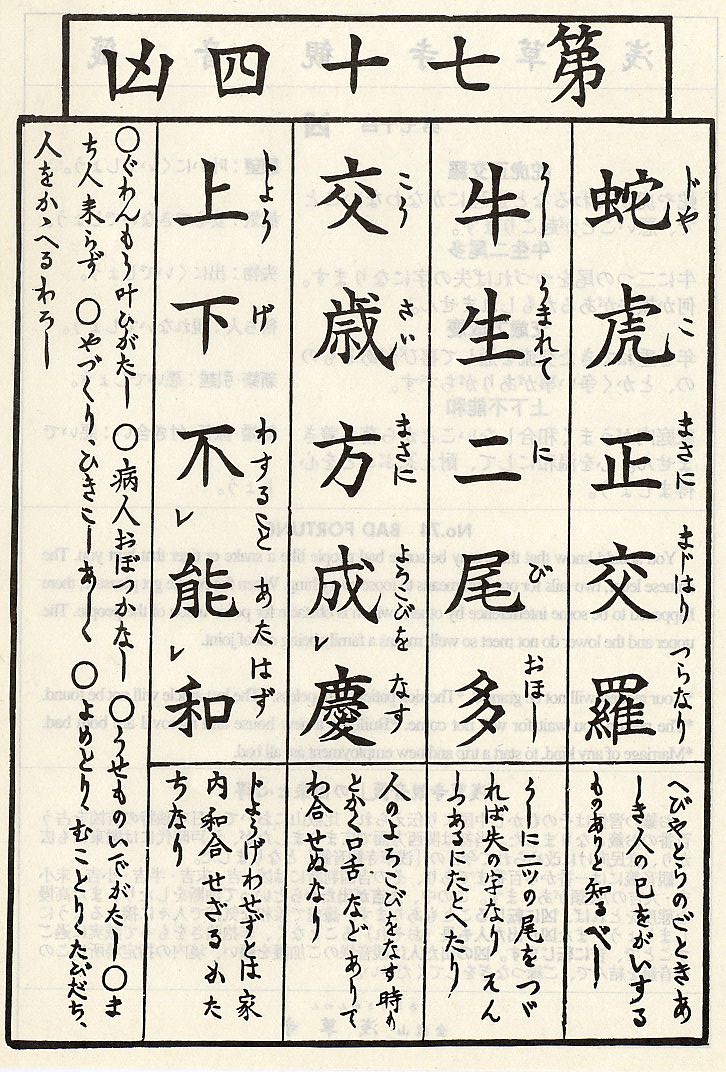 第七十四凶
蛇虎正交羅
じや こ まさに まじはり つらなり
へびやとらのごときあ
しき人の已をがいする
ものありと知るべし
牛生二尾多
うし うまれて に び おほ
うしに二ツの尾をつづ
れば失の字なり
つあるにたとへたり
交歳方成慶
こう さい まさに よろこびを なす
人のよろこびをなす時も
とかく口舌などありて
わ合せぬなり
上下不能和
じよう げ わすること あたはず
じようげわせずとは家
内和合せざるかた
ちなり
〇ぐわんもう叶ひがたし 〇病人おぼつかなし 〇うせものいでがたし 〇ま
ち人来らず 〇やづくりひきこしあしく 〇よめとりむことりたびだち、
人をかゝへるわろし